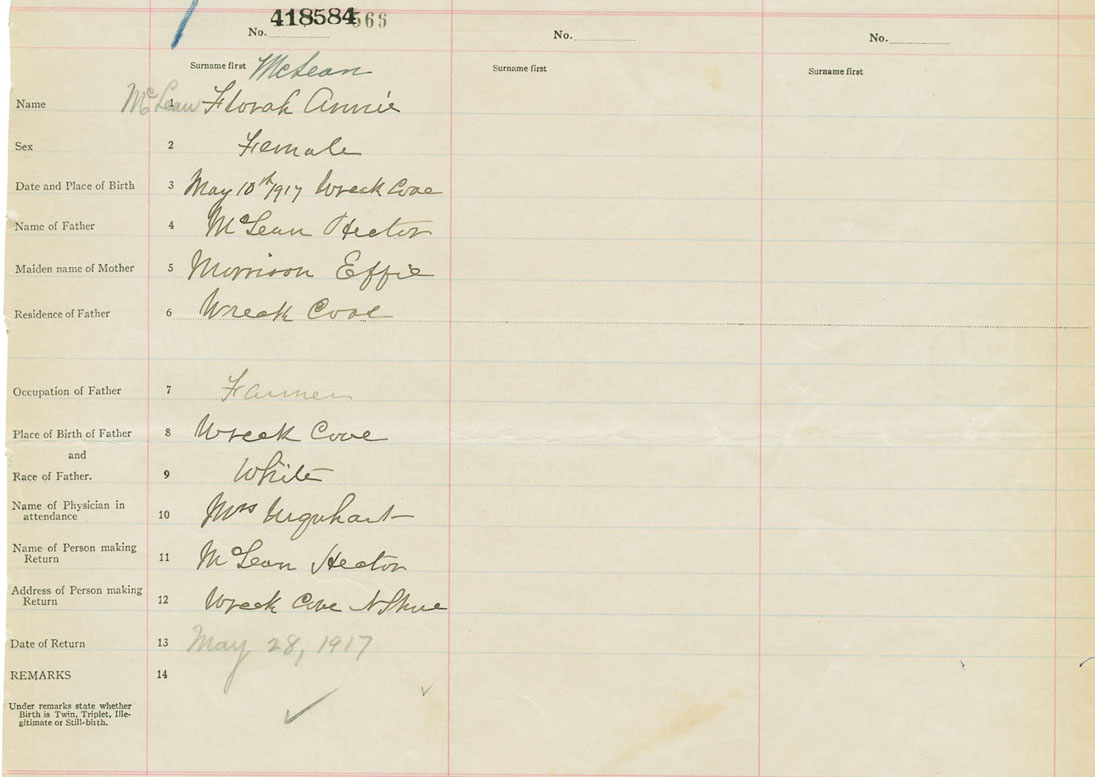 No. 418584 566 No. No.
Surname first McLean Surname first Surname first
Name McLean 1 Florah Annie
Sex 2 Female
Date and Place of Birth 3 May 10th/1917 Wreck Cove
Name of Father 4 McLean Hector
Maiden name of Mother 5 Morrison Effie
Residence of Father 6 Wreck Cove
Occupation of Father 7 Farmer
Place of Birth of Father 8 Wreck Cove
and
Race of Father. 9 White
Name of Physician in
attendance 10 Mrs Urquhart
Name of Person making
Return 11 McLean Hector
Address of Person making
Return 12 Wreck Cove N Shore
Date of Return 13 May 28, 1917
REMARKS 14
Under remarks state whether
Birth is Twin, Triplet, Ille-
gitimate or Still-birth.